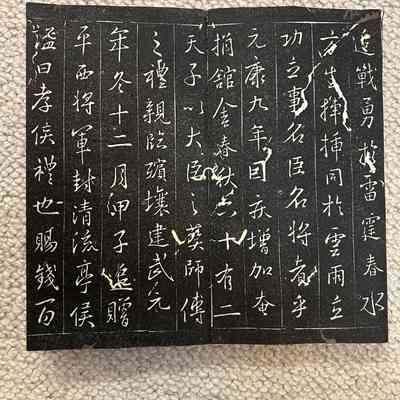 戰勇於雷霆春水
方生揮插同於雲雨立
功立事名臣名將者乎
元康九年因疾增加奄
捐館舍春秋六十有二
天子以大臣之葬師傅
之禮親臨殯壤建武元
年冬十二月甲子追贈
平西將軍封清流亭侯
謚曰孝侯禮也賜錢百